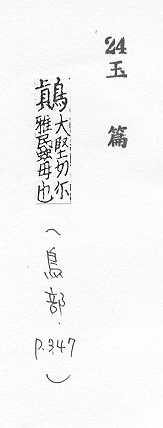 24玉篇
鷏大堅切尒雅鷏蟁母也
(鳥部.p.347)